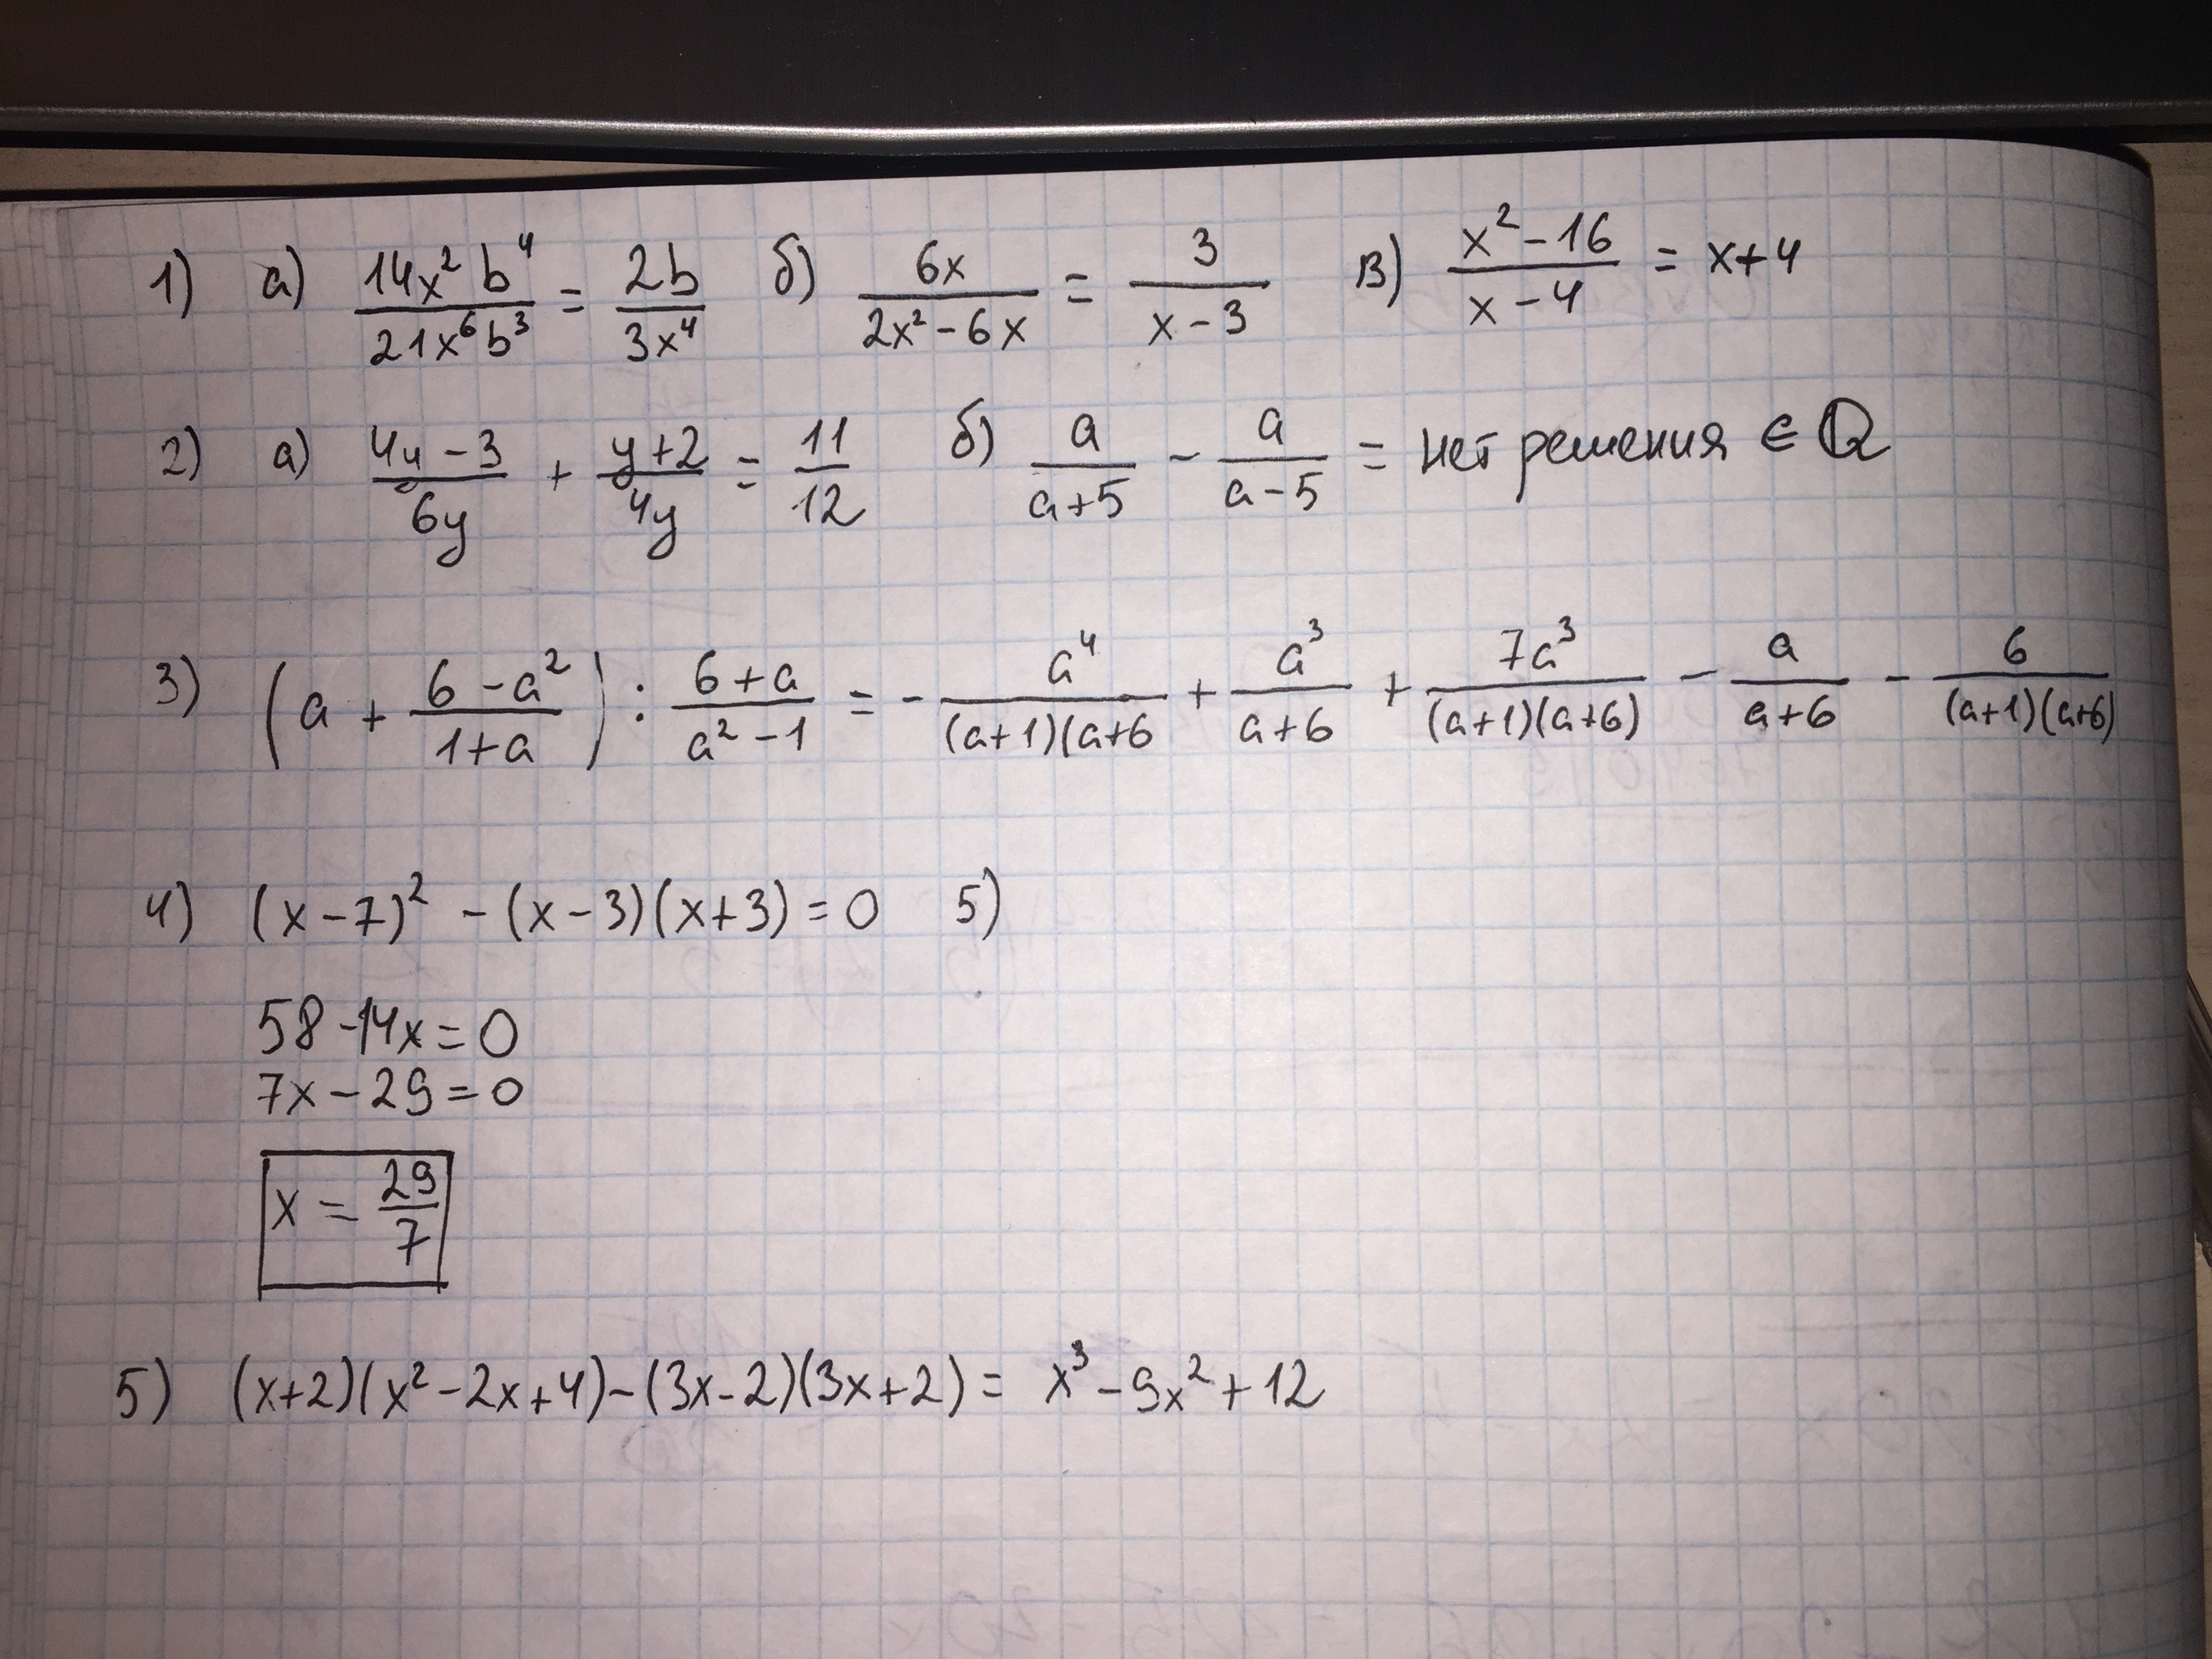 1) а) 14x² b⁴ / 21x⁶b³ = 2b / 3x⁴ б) 6x / 2x² - 6x = 3 / x - 3 в) x² - 16 / x - 4 = x + 4
2) а) 4y - 3 / 6y + y + 2 / 4y = 11 / 12 б) a / a + 5 - a / a - 5 = нет решения ∈ ℚ
3) (a + 6 - a² / 1 + a) : 6 + a / a² - 1 = - a⁴ / (a+1)(a+6 + a³ / a + 6 + 7a³ / (a+1)(a+6) - a / a + 6 - 6 / (a+1)(a+6)
4) (x - 7)² - (x - 3)(x + 3) = 0 5)
58 - 14x = 0
7x - 29 = 0
x = 29 / 7
5) (x+2)(x² - 2x + 4) - (3x - 2)(3x + 2) = x³ - 9x² + 12